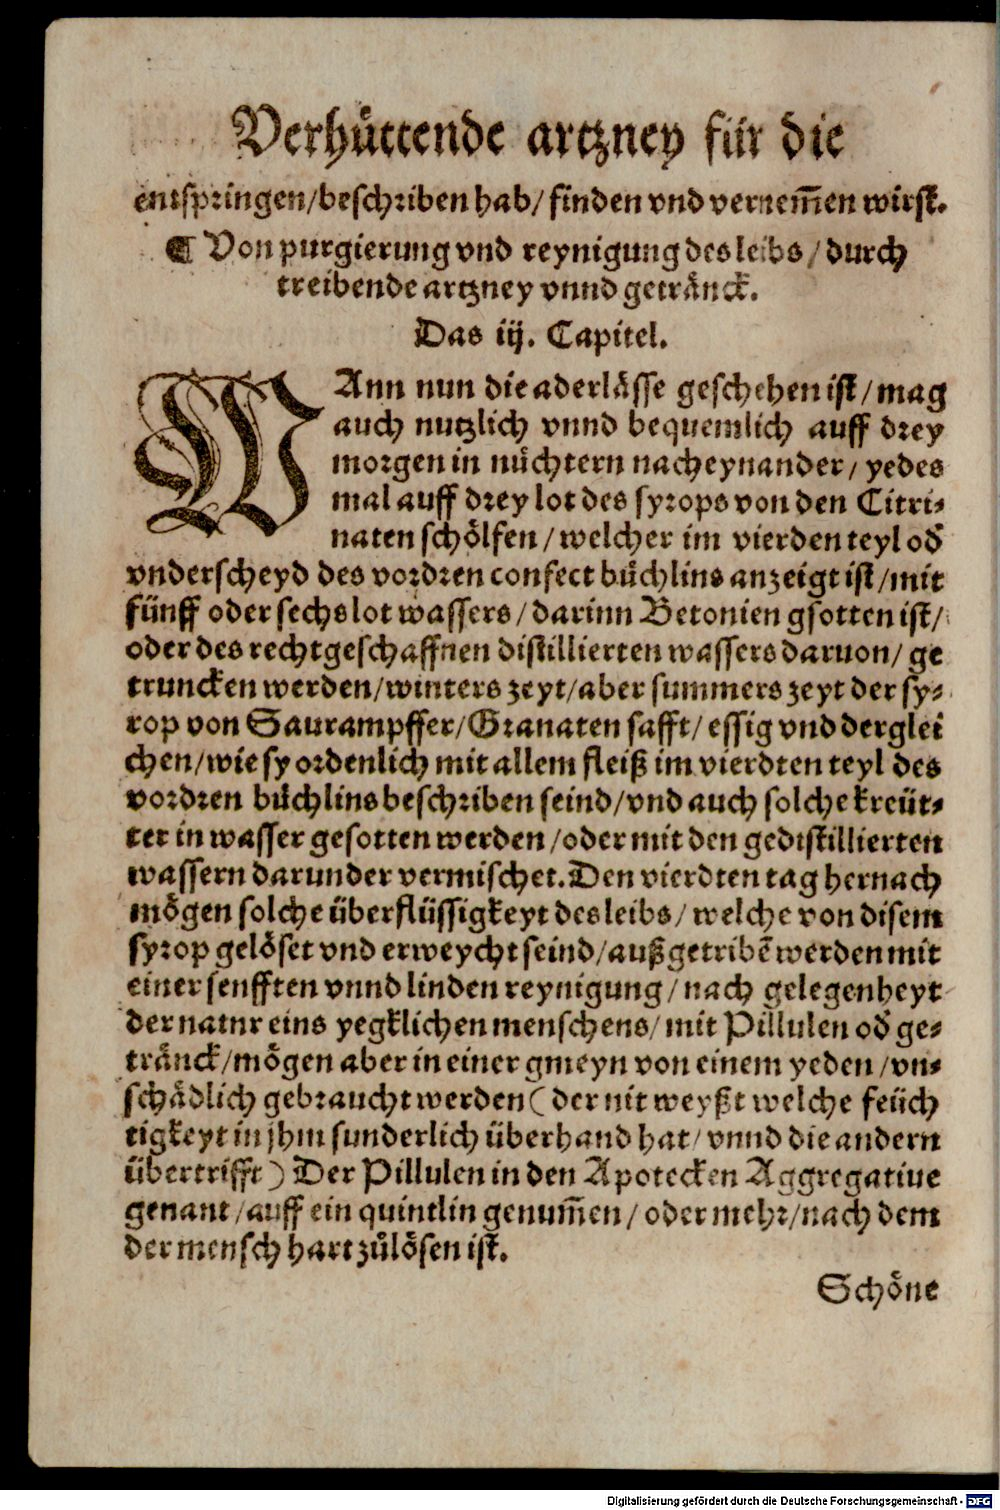 Verhuͤttende artzney für die
entspringen/beschriben hab/finden vnd vernem̃en wirst.
¶ Von purgierung vnd reynigung des leibs/durch
treibende artzney vnnd getraͤnck.
Das iij. Capitel.
WAnn nun die aderlaͤsse geschehen ist/mag
auch nutzlich vnnd bequemlich auff drey
morgen in nuͤchtern nacheynander/yedes
mal auff drey lot des syrops von den Citri⸗
naten schoͤlfen/welcher im vierden teyl od̄
vnderscheyd des vordren confect buͤchlins anzeigt ist/mit
fünff oder sechs lot wassers/darinn Betonien gsotten ist/
oder des rechtgeschaffnen distillierten wassers daruon/ge
truncken werden/winters zeyt/aber summers zeyt der sy⸗
rop von Saurampffer/Granaten safft/essig vnd derglei
chen/wie sy ordenlich mit allem fleiß im vierdten teyl des
vordren buͤchlins beschriben seind/vnd auch solche kreüt⸗
ter in wasser gesotten werden/oder mit den gedistillierten
wassern darunder vermischet. Den vierdten tag hernach
moͤgen solche überflüssigkeyt des leibs/welche von disem
syrop geloͤset vnd erweycht seind/außgetribē werden mit
einer senfften vnnd linden reynigung/nach gelegenheyt
der natnr eins yegklichen menschens/mit Pillulen od̄ ge⸗
traͤnck/moͤgen aber in einer gmeyn von einem yeden/vn⸗
schaͤdlich gebraucht werden (der nit weyßt welche feüch
tigkeyt in jhm sunderlich überhand hat/vnnd die andern
übertrifft) Der Pillulen in den Apotecken Aggregatiue
genant/auff ein quintlin genum̃en/oder mehr/nach dem
der mensch hart zuͦloͤsen ist.
Schoͤne
Digitalisierung gefördert durch die Deutsche Forschungsgemeinschaft - DFG